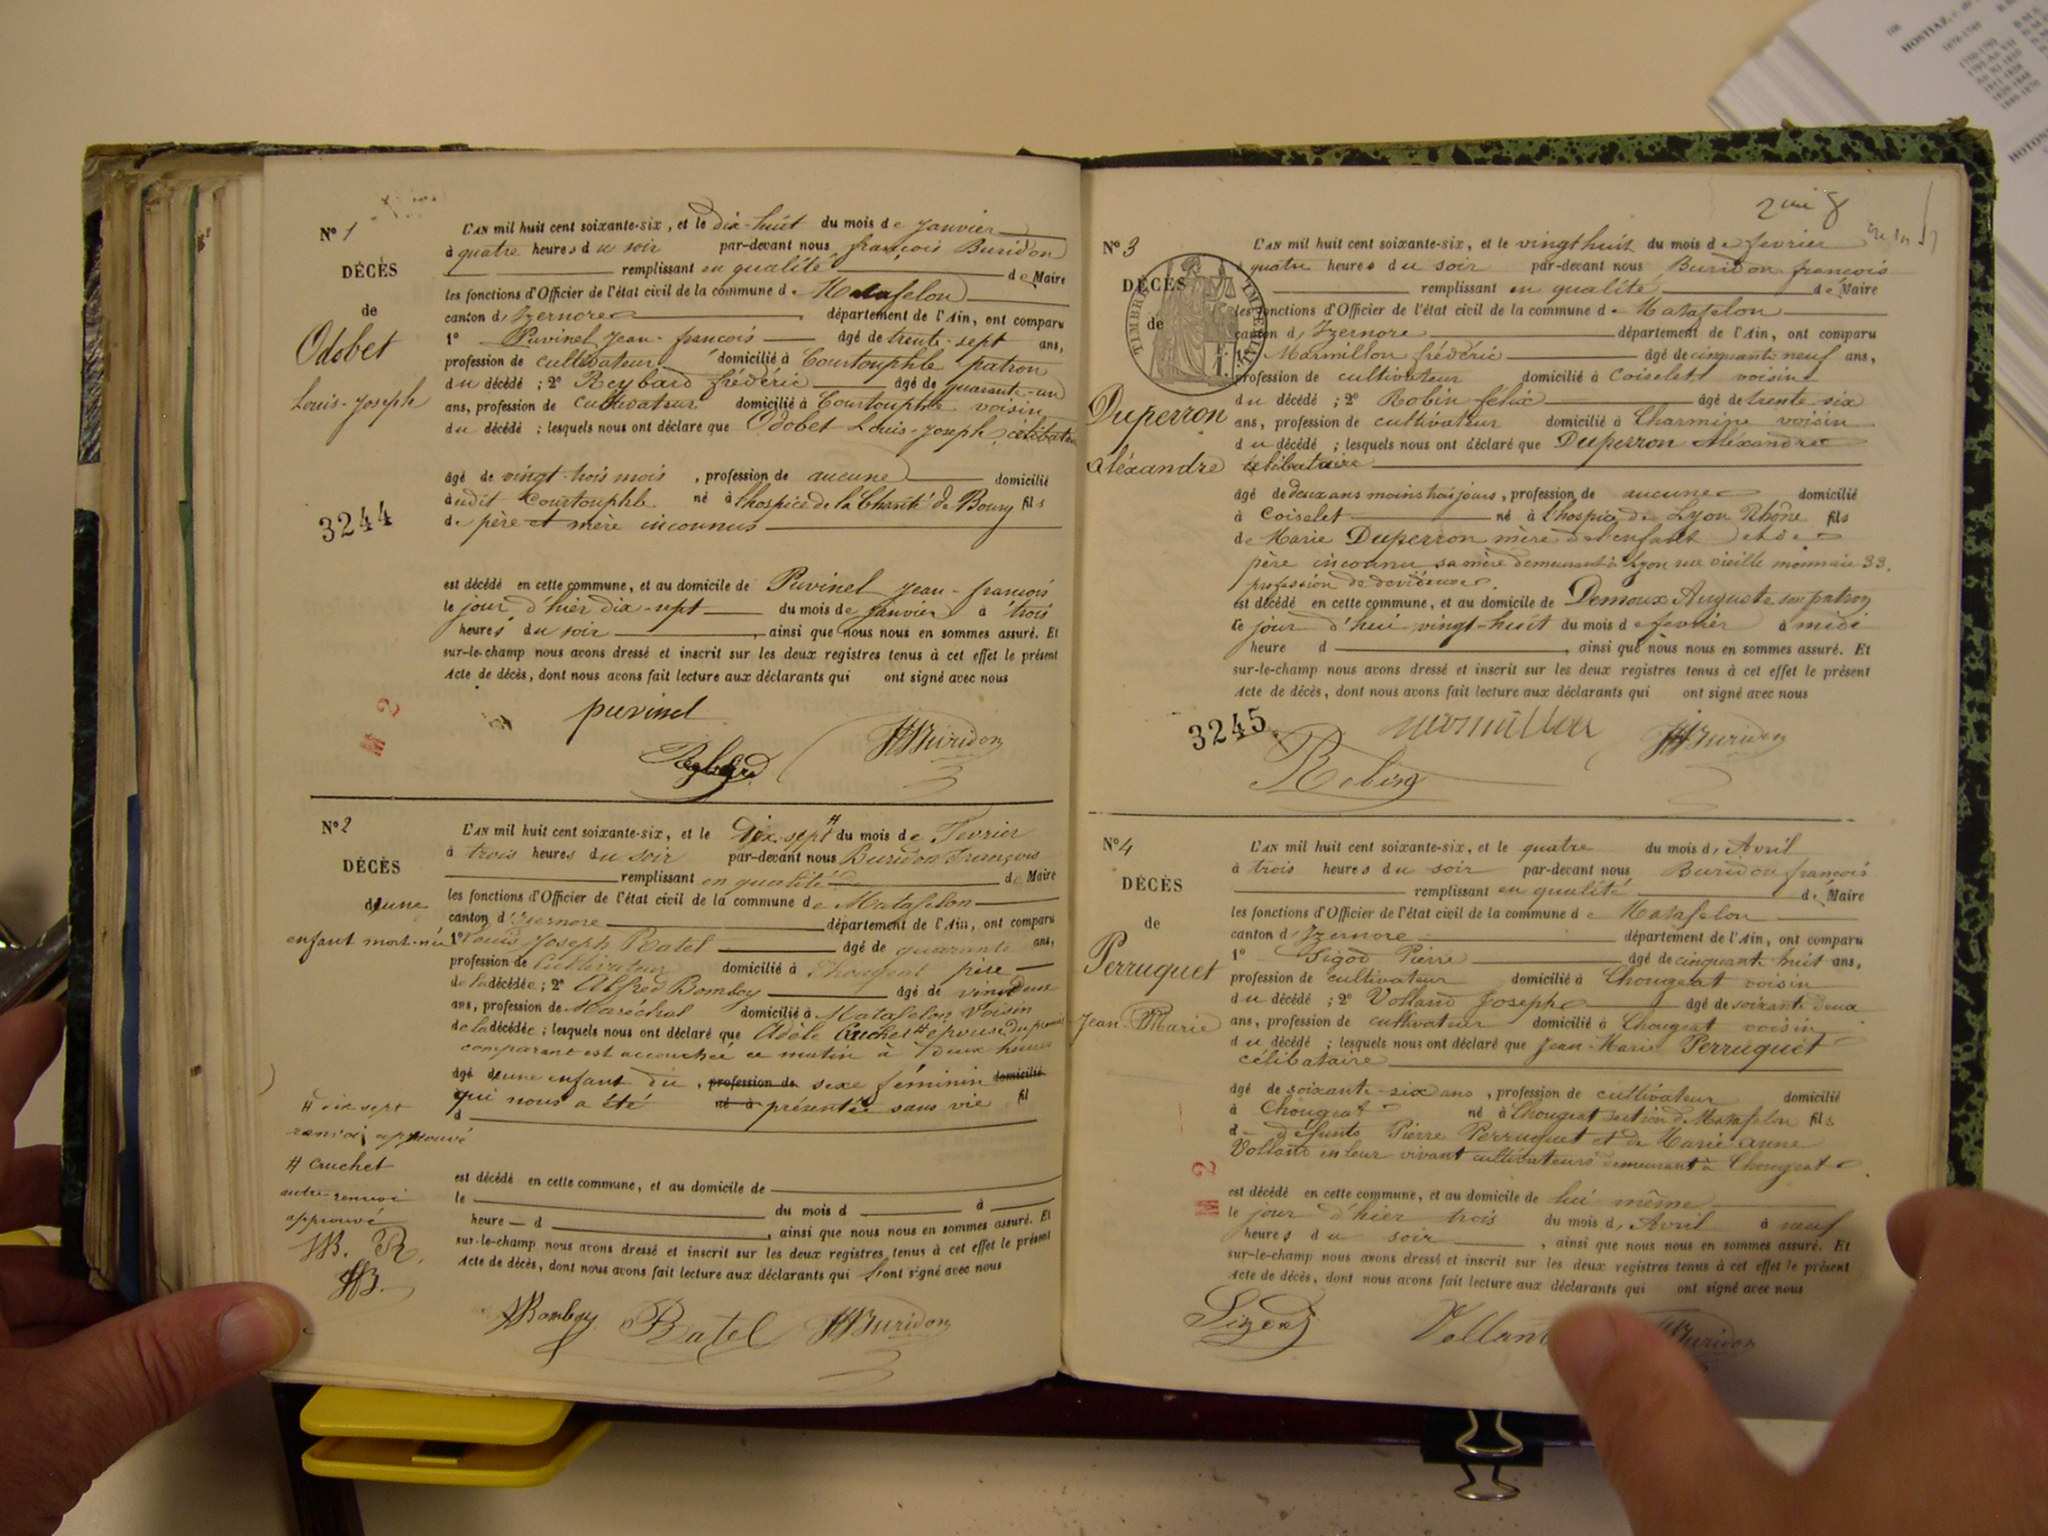 Nº 1
DÉCÈS
de
Odobet
Louis-Joseph
3244
L'AN mil huit cent soixante-six, et le dix-huit du mois de janvier
à quatre heures du soir par-devant nous françois Buridon
remplissant en qualité de Maire
les fonctions d'Officier de l'état civil de la commune de Matafelon
canton d'Izernore département de l'Ain, ont comparu
1º Puvinel Jean-françois âgé de trente-sept ans,
profession de cultivateur domicilié à Courtouphle patron
du décédé ; 2º Reybard frédéric âgé de quarante-un
ans, profession de cultivateur domicilié à Courtouphle voisin
du décédé ; lesquels nous ont déclaré que Odobet Louis-Joseph, célibataire
âgé de vingt-trois mois, profession de aucune domicilié
audit Courtouphle né à l'hospice de la Charité de Bourg fils
de père et mère inconnus
est décédé en cette commune, et au domicile de Puvinel Jean-françois
le jour d'hier dix-sept du mois de janvier à trois
heures du soir, ainsi que nous nous en sommes assuré. Et
sur-le-champ nous avons dressé et inscrit sur les deux registres tenus à cet effet le présent
Acte de décès, dont nous avons fait lecture aux déclarants qui ont signé avec nous
puvinel
Reybard
Buridon
Nº 2
DÉCÈS
d'une
enfant mort-née
# dix sept
renvoi approuvé
# Cuchet
autre renvoi
approuvé
B. R.
B.
L'AN mil huit cent soixante-six, et le dix-sept # du mois de Fevrier
à trois heures du soir par-devant nous Buridon François
remplissant en qualité de Maire
les fonctions d'Officier de l'état civil de la commune de Matafelon
canton d'Izernore département de l'Ain, ont comparu
1º Louis Joseph Ratel âgé de quarante ans,
profession de Cultivateur domicilié à Chougeat père
de la décédée ; 2º Alfred Bomboy âgé de vingt deux
ans, profession de Maréchal domicilié à Matafelon voisin
de la décédée ; lesquels nous ont déclaré que Adèle Cuchet # épouse du premier
comparant est accouchée ce matin à deux heures
âgé d'une enfant du , profession de sexe féminin domicilié
qui nous a été né à présentée sans vie fil
d
est décédé en cette commune, et au domicile de
le du mois d à
heure d , ainsi que nous nous en sommes assuré. Et
sur-le-champ nous avons dressé et inscrit sur les deux registres tenus à cet effet le présent
Acte de décès, dont nous avons fait lecture aux déclarants qui l'ont signé avec nous
Bomboy Ratel Buridon
Nº 3
DÉCÈS
de
TIMBRE IMPERIAL
Duperron
aléxandre
3245
L'AN mil huit cent soixante-six, et le vingt huit du mois de fevrier
à quatre heures du soir par-devant nous Buridon françois
remplissant en qualité de Maire
les fonctions d'Officier de l'état civil de la commune de Matafelon
canton d'Izernore département de l'Ain, ont comparu
1º Marmillon frédéric âgé de cinquante neuf ans,
profession de cultivateur domicilié à Coiselet voisin
du décédé ; 2º Robin félix âgé de trente six
ans, profession de cultivateur domicilié à Charmine voisin
du décédé ; lesquels nous ont déclaré que Duperron Aléxandre
célibataire
âgé de deux ans moins trois jours, profession de aucune domicilié
à Coiselet né à l'hospice de Lyon Rhône fils
de Marie Duperron mère de l'enfant et de
père inconnu, sa mère demeurant à Lyon rue vieille monnaie 33.
profession de dévideuse.
est décédé en cette commune, et au domicile de Demoux Auguste son patron
le jour d'hui vingt-huit du mois de fevrier à midi
heure d , ainsi que nous nous en sommes assuré. Et
sur-le-champ nous avons dressé et inscrit sur les deux registres tenus à cet effet le présent
Acte de décès, dont nous avons fait lecture aux déclarants qui ont signé avec nous
marmillon Buridon
Robin
Nº 4
DÉCÈS
de
Perruquet
Jean-Marie
L'AN mil huit cent soixante-six, et le quatre du mois d'Avril
à trois heures du soir par-devant nous Buridon françois
remplissant en qualité de Maire
les fonctions d'Officier de l'état civil de la commune de Matafelon
canton d'Izernore département de l'Ain, ont comparu
1º Sigod Pierre âgé de cinquante huit ans,
profession de cultivateur domicilié à Chougeat voisin
du décédé ; 2º Volland Joseph âgé de soixante deux
ans, profession de cultivateur domicilié à Chougeat voisin
du décédé ; lesquels nous ont déclaré que Jean-Marie Perruquet
célibataire
âgé de soixante-six ans, profession de cultivateur domicilié
à Chougeat né à Chougeat section de Matafelon fils
de défunts Pierre Perruquet et de Marie anne
Volland en leur vivant cultivateurs demeurant à Chougeat
est décédé en cette commune, et au domicile de lui même
le jour d'hier trois du mois d'Avril à neuf
heures du soir, ainsi que nous nous en sommes assuré. Et
sur-le-champ nous avons dressé et inscrit sur les deux registres tenus à cet effet le présent
Acte de décès, dont nous avons fait lecture aux déclarants qui ont signé avec nous
Volland Buridon